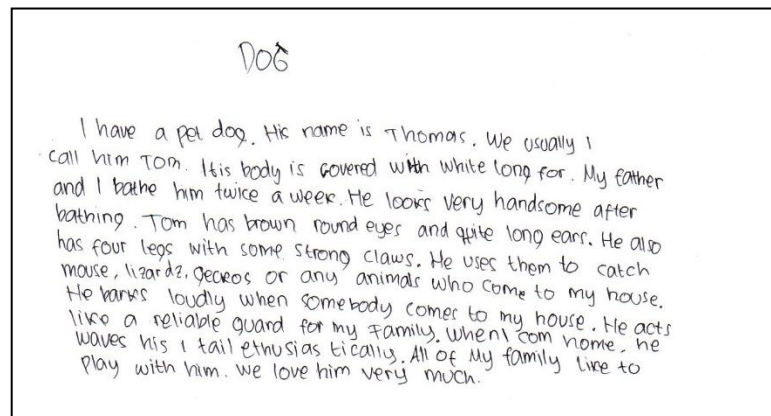 DOG
I have a pet dog. His name is Thomas. We usually I
call him Tom. Itis body is covered with white long for. My father
and I bathe him twice a week. He looks very handsome after
bathing. Tom has brown round eyes and quite long ears. He also
has four legs with some strong claws. He uses them to catch
mouse, lizardz, geckos or any animals who come to my house.
He barks loudly when somebody comes to my house. He acts
like a reliable guard for my family. when I com home, he
waves his I tail ethusias tically. All of My family like to
play with him. we love him very much.